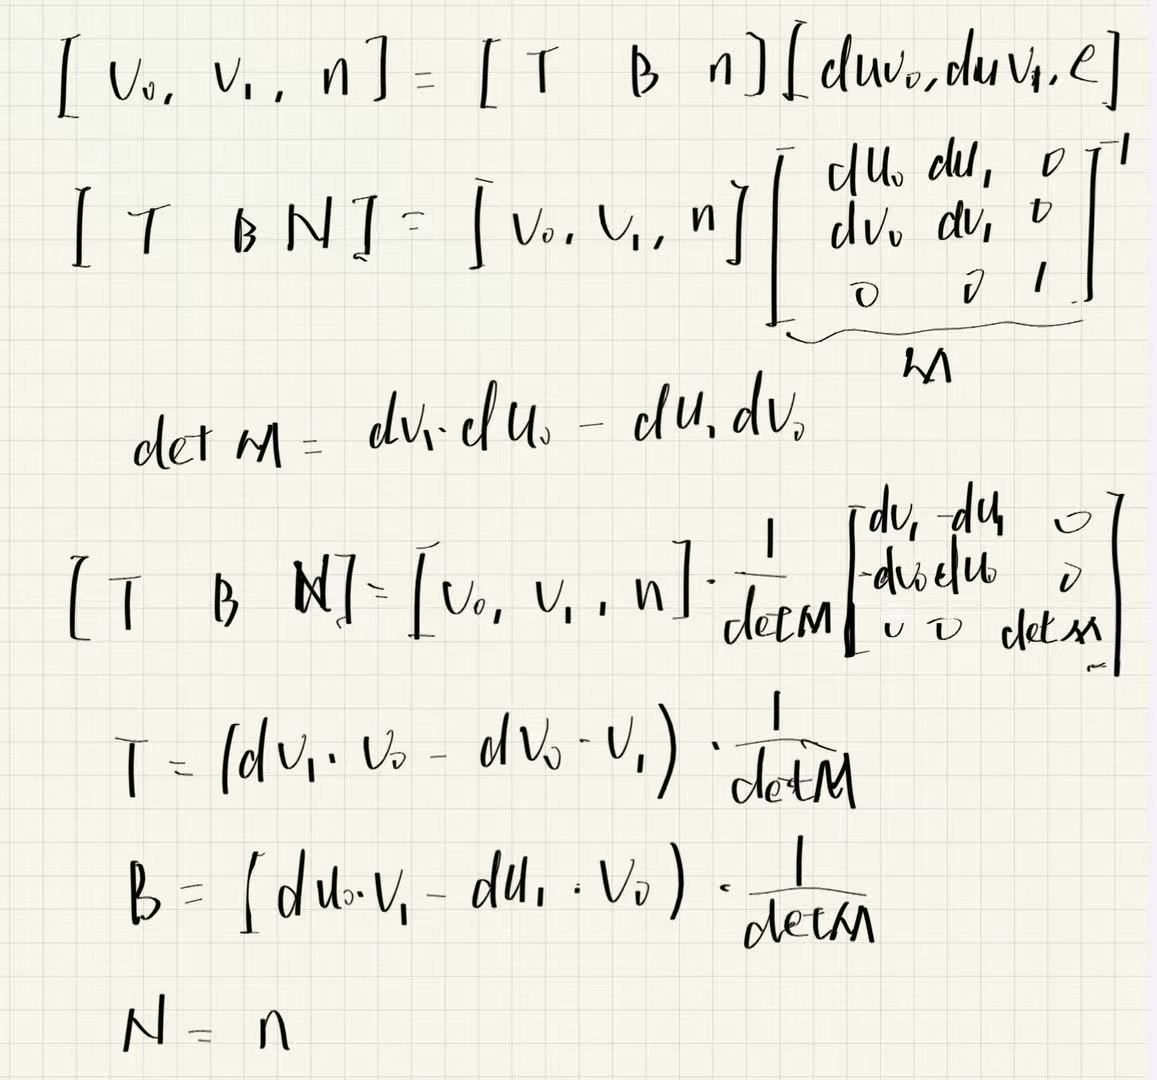 [ v₀, v₁, n ] = [ T B n ] [ duv₀, duv₁, e ]
[ T B N ] = [ v₀, v₁, n ] [ du₀ du₁ 0
dv₀ dv₁ 0
0 0 1 ]⁻¹
M
det M = dv₁·du₀ - du₁ dv₀
[ T B N ] = [ v₀, v₁, n ] · 1/det M [ dv₁ -du₁ 0
-dv₀ du₀ 0
0 0 det M ]
T = (dv₁·v₀ - dv₀·v₁) · 1/det M
B = (du₀·v₁ - du₁·v₀) · 1/det M
N = n